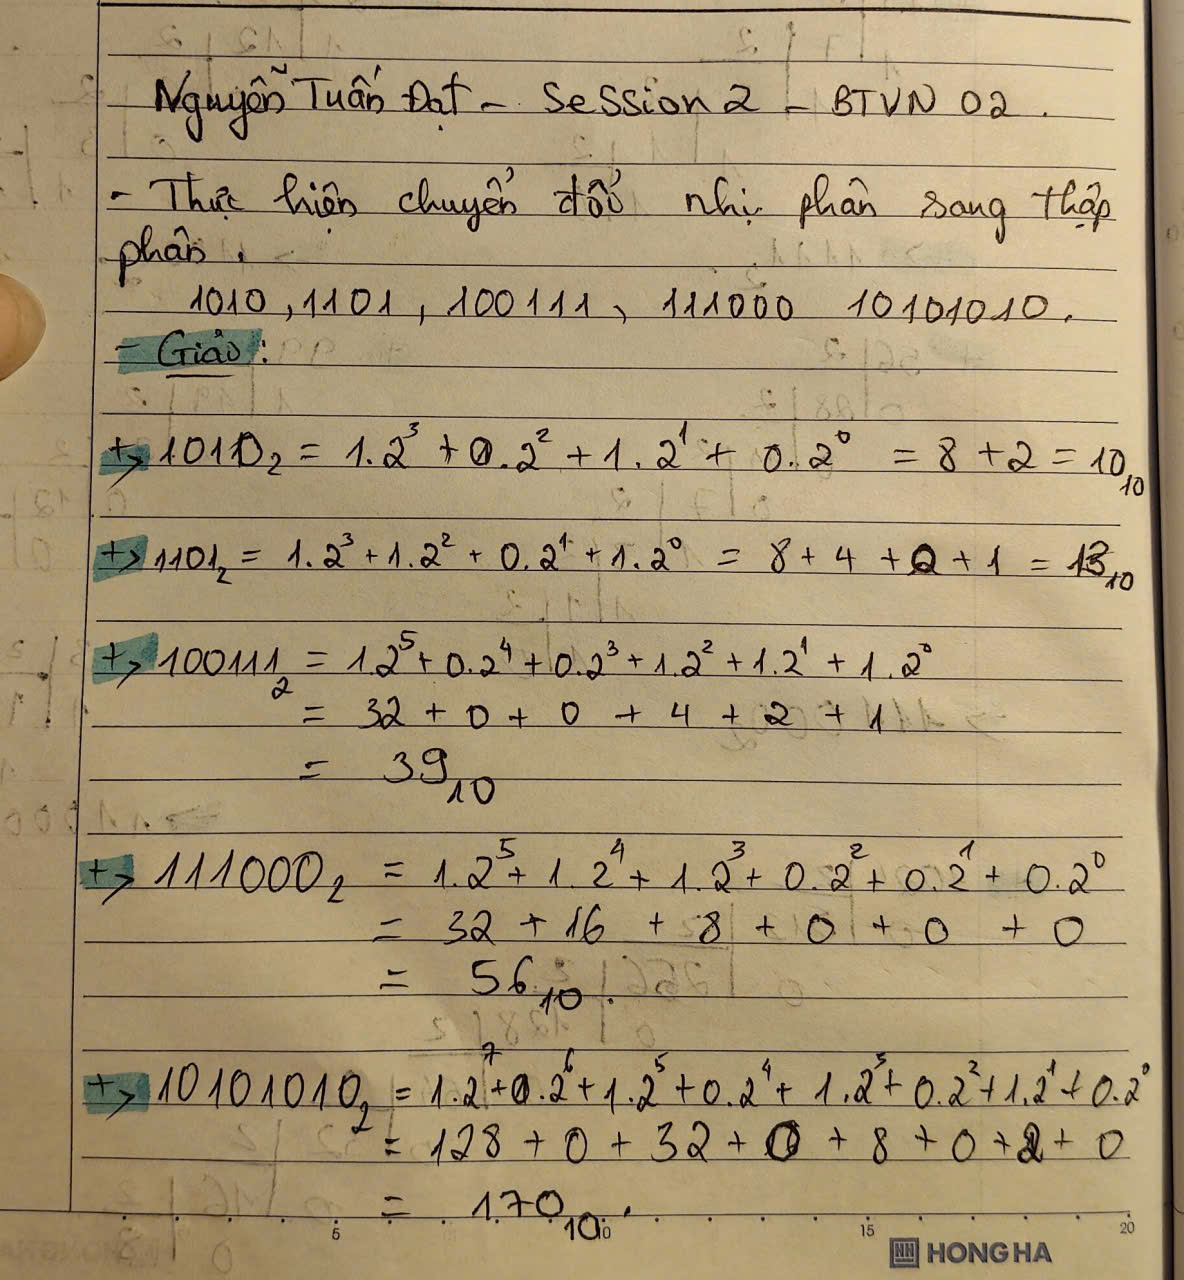 Nguyễn Tuấn Đạt - Session 2 - BTVN 02.
- Thực hiện chuyển đổi nhị phân sang thập
phân.
1010, 1101, 100111, 111000 10101010.
- Giải:
+> 1010₂ = 1.2³ + 0.2² + 1.2¹ + 0.2⁰ = 8 + 2 = 10₁₀
+> 1101₂ = 1.2³ + 1.2² + 0.2¹ + 1.2⁰ = 8 + 4 + 0 + 1 = 13₁₀
+> 100111₂ = 1.2⁵ + 0.2⁴ + 0.2³ + 1.2² + 1.2¹ + 1.2⁰
= 32 + 0 + 0 + 4 + 2 + 1
= 39₁₀
+> 111000₂ = 1.2⁵ + 1.2⁴ + 1.2³ + 0.2² + 0.2¹ + 0.2⁰
= 32 + 16 + 8 + 0 + 0 + 0
= 56₁₀.
+> 10101010₂ = 1.2⁷ + 0.2⁶ + 1.2⁵ + 0.2⁴ + 1.2³ + 0.2² + 1.2¹ + 0.2⁰
= 128 + 0 + 32 + 0 + 8 + 0 + 2 + 0
= 170₁₀.
5 10 15 20
HONG HA